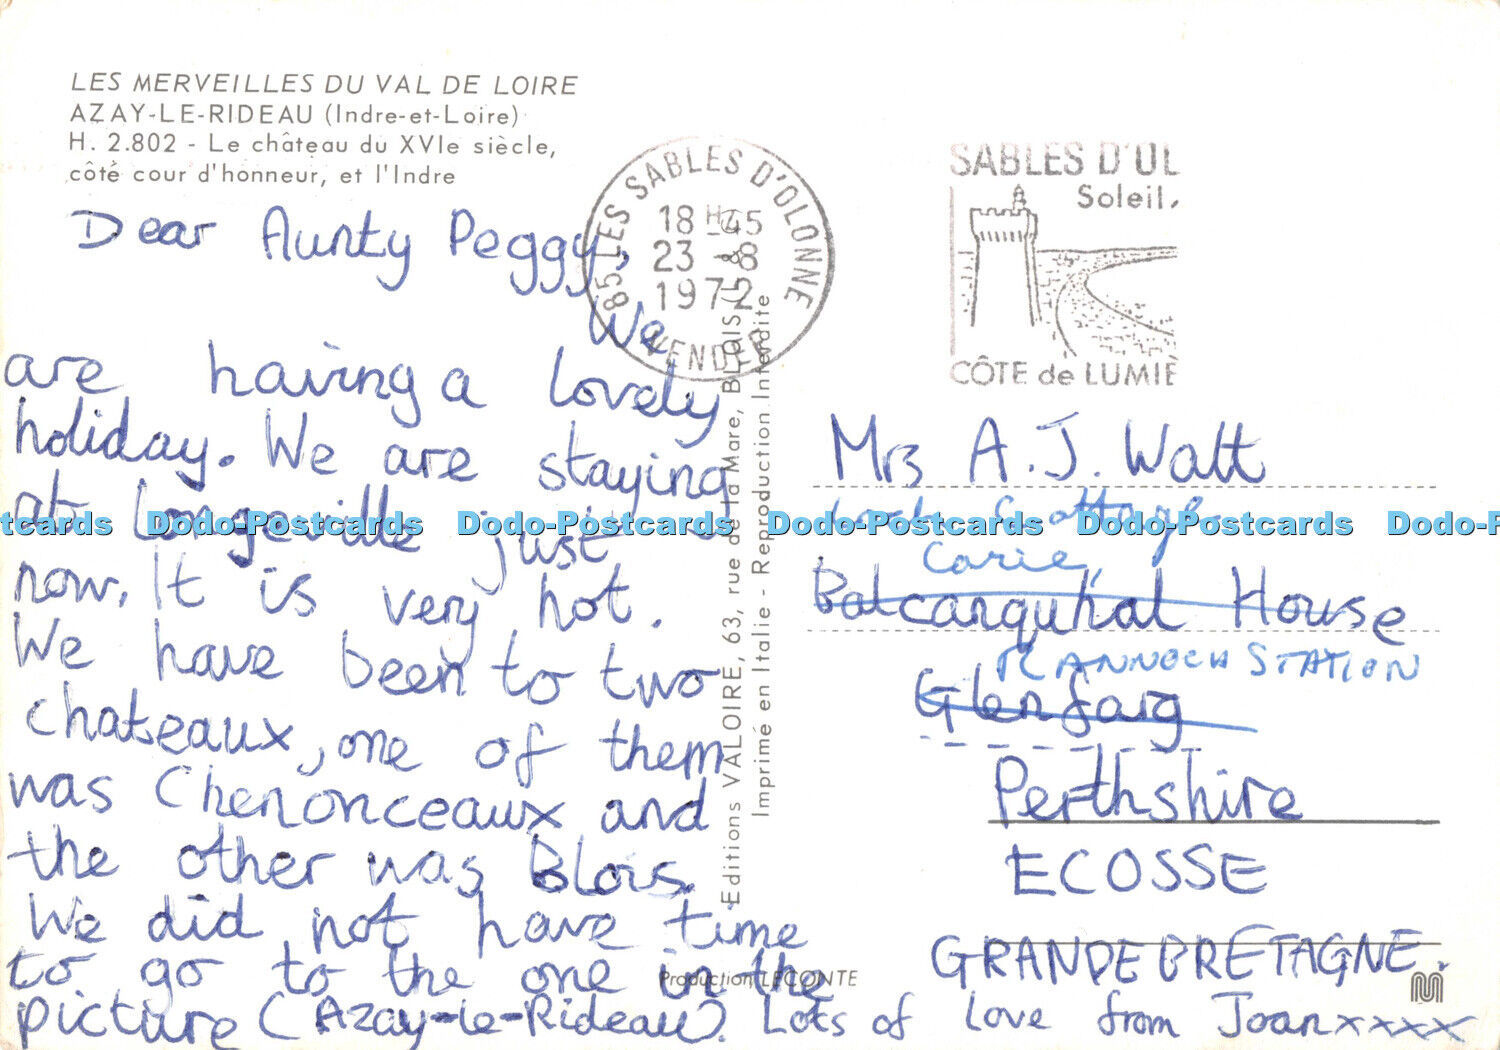 LES MERVEILLES DU VAL DE LOIRE
AZAY-LE-RIDEAU (Indre-et-Loire)
H. 2.802 - Le château du XVIe siècle,
côté cour d'honneur, et l'Indre
Dear Aunty Peggy,
We
are having a lovely
holiday. We are staying
at Longeville just
now. It is very hot.
We have been to two
chateaux, one of them
was Chenonceaux and
the other was Blois.
We did not have time
to go to the one in the
picture (Azay-le-Rideau). Lots of love from Joan xxxx
85 LES SABLES D'OLONNE
18 H 45
23 - 8
1972
VENDEE
SABLES D'OL
Soleil,
CÔTE de LUMIÈ
Editions VALOIRE, 63, rue de la Mare, BLOIS
Imprimé en Italie - Reproduction Interdite
Production LECONTE
Mrs A.J. Watt
Cottage
Carie,
Balcanquhal House
RANNOCH STATION
Glenfarg
Perthshire
ECOSSE
GRANDE BRETAGNE.
Dodo-Postcards Dodo-Postcards Dodo-Postcards Dodo-Postcards Dodo-P